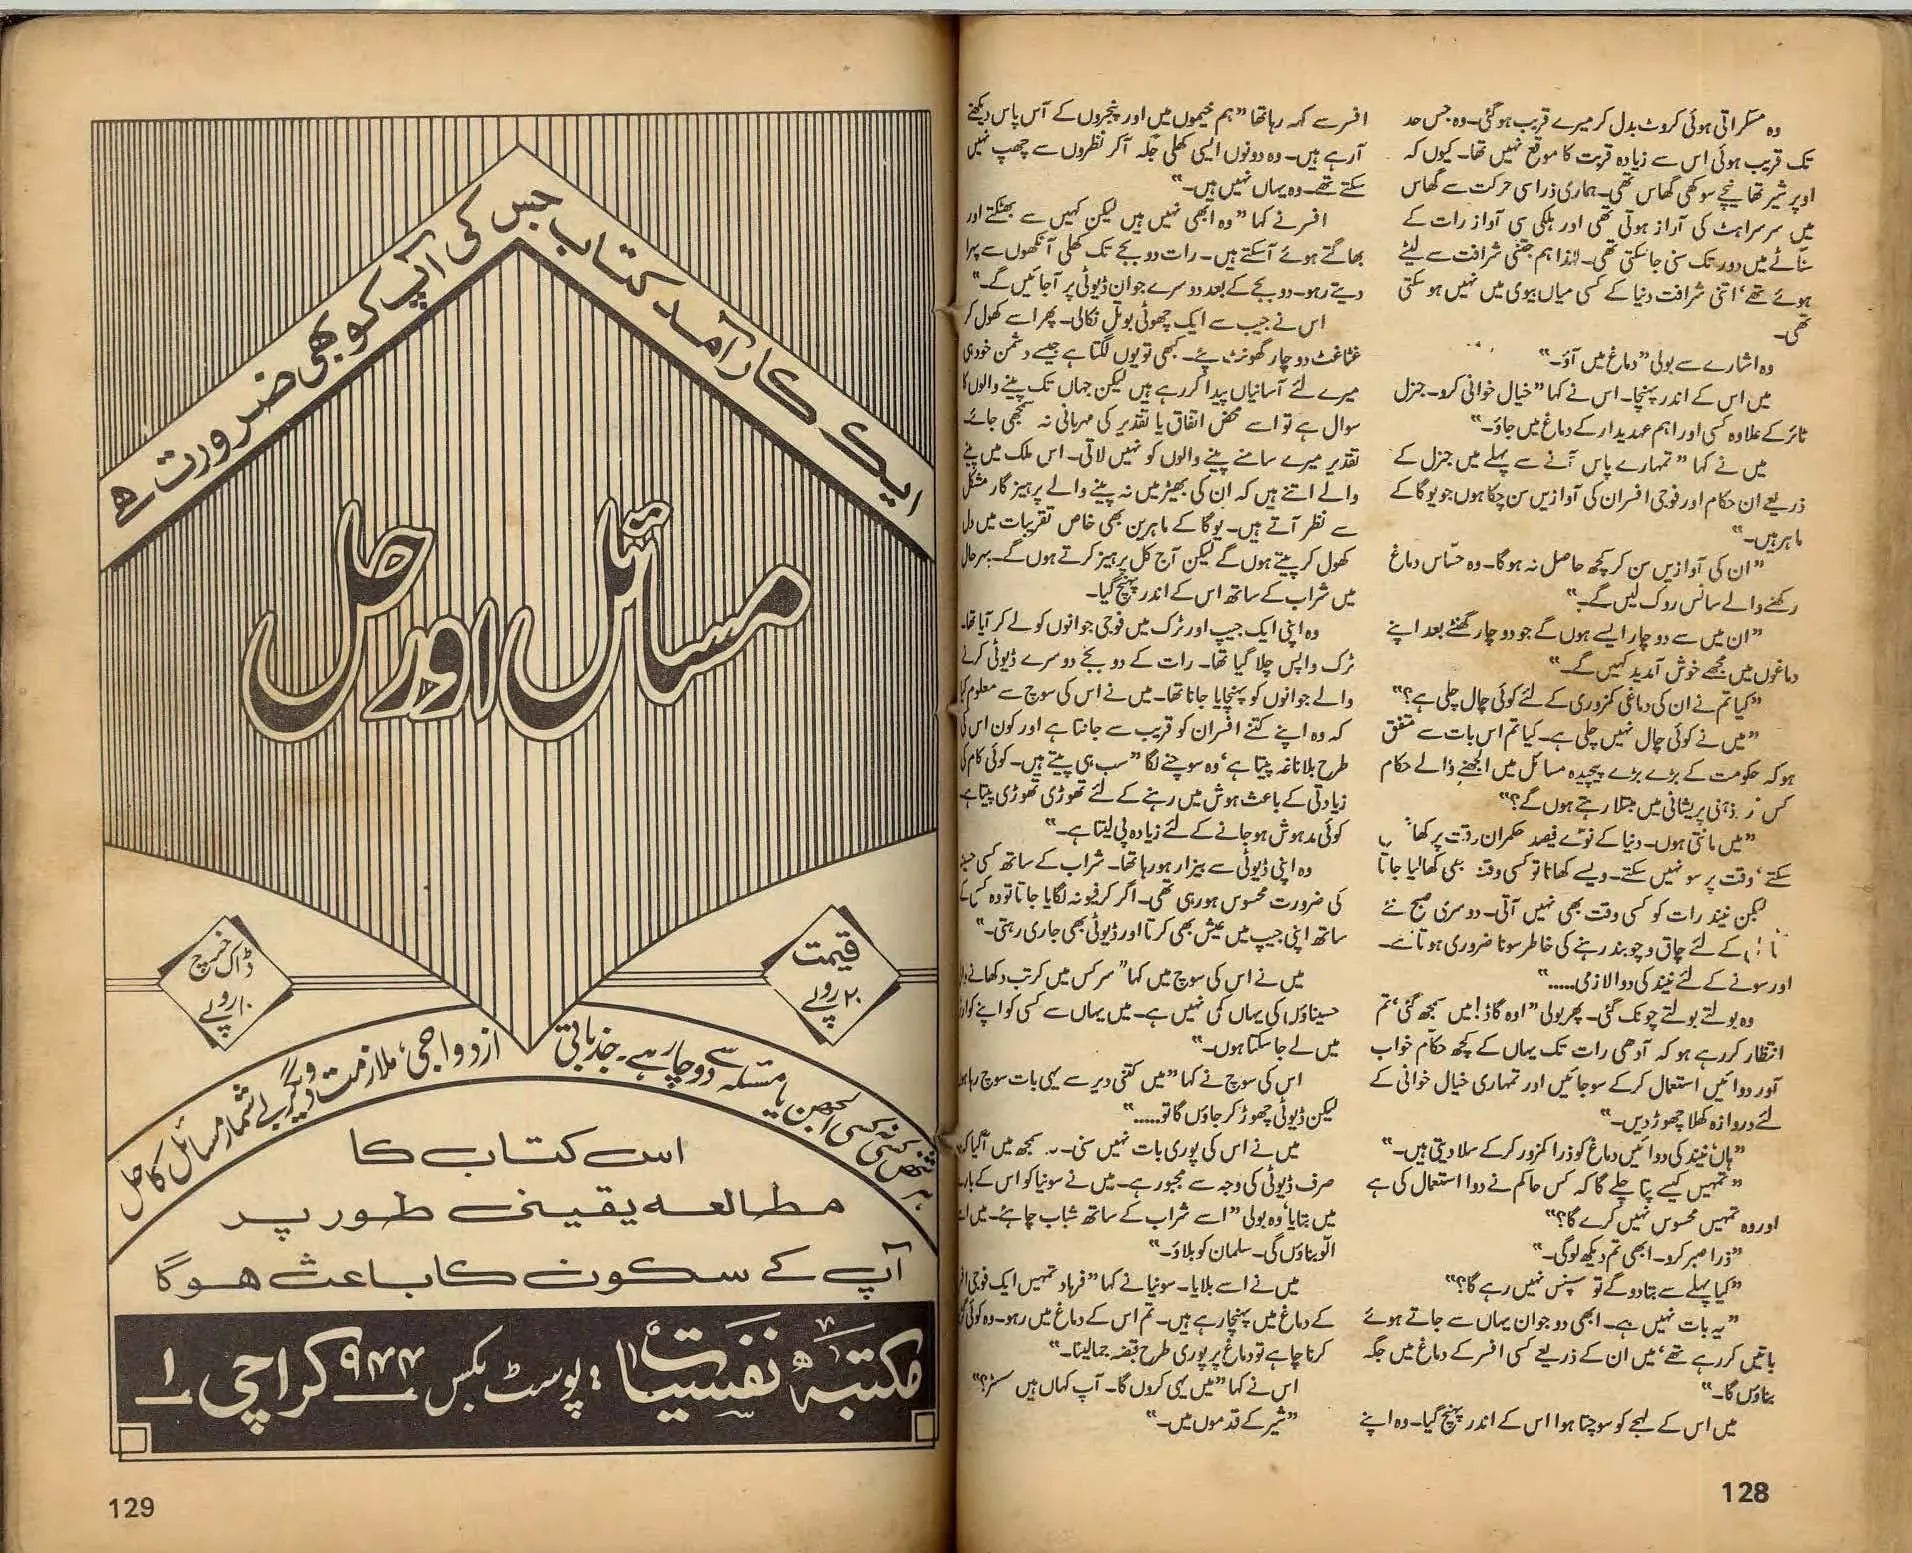 وہ مسکراتی ہوئی کروٹ بدل کر میرے قریب ہو گئی۔ وہ جس حد
تک قریب ہوئی اس سے زیادہ قربت کا موقع نہیں تھا۔ کیوں کہ
اوپر شیر تھا نیچے سوکھی گھاس تھی۔ ہماری ذرا سی حرکت سے گھاس
میں سرسراہٹ کی آراز ہوتی تھی اور ہلکی سی آواز رات کے
سنّاٹے میں دور تک سنی جا سکتی تھی۔ لہٰذا ہم جتنی شرافت سے لیٹے
ہوئے تھے ‘ اتنی شرافت دنیا کے کسی میاں بیوی میں نہیں ہو سکتی
تھی۔
وہ اشارے سے بولی “دماغ میں آؤ۔”
میں اس کے اندر پہنچا۔ اس نے کہا “خیال خوانی کرو۔ جنرل
ٹائر کے علاوہ کسی اور اہم عہدیدار کے دماغ میں جاؤ۔”
میں نے کہا “تمہارے پاس آنے سے پہلے میں جنرل کے
ذریعے ان حکام اور فوجی افسران کی آوازیں سن چکا ہوں جو یوگا کے
ماہر ہیں۔”
“ان کی آوازیں سن کر کچھ حاصل نہ ہو گا۔ وہ حسّاس دماغ
رکھنے والے سانس روک لیں گے۔”
“ان میں سے دو چار ایسے ہوں گے جو دو چار گھنٹے بعد اپنے
دماغوں میں مجھے خوش آمدید کہیں گے۔”
“کیا تم نے ان کی دماغی کمزوری کے لئے کوئی چال چلی ہے؟”
“میں نے کوئی چال نہیں چلی ہے۔ کیا تم اس بات سے متفق
ہو کہ حکومت کے بڑے بڑے پیچیدہ مسائل میں الجھنے والے حکام
کس ذہنی پریشانی میں مبتلا رہتے ہوں گے؟”
“میں مانتی ہوں۔ دنیا کے نوّے فیصد حکمران وقت پر کھا
سکتے ‘ وقت پر سو نہیں سکتے۔ ویسے کھانا تو کسی وقت بھی کھا لیا جاتا
لیکن نیند رات کو کسی وقت بھی نہیں آتی۔ دوسری صبح نئے
کے لئے چاق و چوبند رہنے کی خاطر سونا ضروری ہوتا ہے۔
اور سونے کے لئے نیند کی دوا لازمی.....”
وہ بولتے بولتے چونک گئی۔ پھر بولی “اوہ گاڈ! میں سمجھ گئی ‘ تم
انتظار کر رہے ہو کہ آدھی رات تک یہاں کے کچھ حکّام خواب
آور دوائیں استعمال کر کے سو جائیں اور تمہاری خیال خوانی کے
لئے دروازہ کھلا چھوڑ دیں۔”
“ہاں ‘ نیند کی دوائیں دماغ کو ذرا کمزور کر کے سلا دیتی ہیں۔”
“تمہیں کیسے پتا چلے گا کہ کس حاکم نے دوا استعمال کی ہے
اور وہ تمہیں محسوس نہیں کرے گا؟”
“ذرا صبر کرو۔ ابھی تم دیکھ لو گی۔”
“کیا پہلے سے بتا دو گے تو سسپنس نہیں رہے گا؟”
“یہ بات نہیں ہے۔ ابھی دو جوان یہاں سے جاتے ہوئے
باتیں کر رہے تھے ‘ میں ان کے ذریعے کسی افسر کے دماغ میں جگہ
بناؤں گا۔”
میں اس کے لہجے کو سوچتا ہوا اس کے اندر پہنچ گیا۔ وہ اپنے
افسر سے کہہ رہا تھا “ہم خیموں میں اور پنجروں کے آس پاس دیکھتے
آ رہے ہیں۔ وہ دونوں ایسی کھلی جگہ آ کر نظروں سے چھپ نہیں
سکتے تھے۔ وہ یہاں نہیں ہیں۔”
افسر نے کہا “وہ ابھی نہیں ہیں لیکن کہیں سے بھٹکتے اور
بھاگتے ہوئے آ سکتے ہیں۔ رات دو بجے تک کھلی آنکھوں سے پہرا
دیتے رہو۔ دو بجے کے بعد دوسرے جوان ڈیوٹی پر آ جائیں گے۔”
اس نے جیب سے ایک چھوٹی بوتل نکالی۔ پھر اسے کھول کر
غٹاغٹ دو چار گھونٹ پئے۔ کبھی تو یوں لگتا ہے جیسے دشمن خود ہی
میرے لئے آسانیاں پیدا کر رہے ہیں لیکن جہاں تک پینے والوں کا
سوال ہے تو اسے محض اتفاق یا تقدیر کی مہربانی نہ سمجھی جائے۔
تقدیر میرے سامنے پینے والوں کو نہیں لاتی۔ اس ملک میں پینے
والے اتنے ہیں کہ ان کی بھیڑ میں نہ پینے والے پرہیز گار مشکل
سے نظر آتے ہیں۔ یوگا کے ماہرین بھی خاص تقریبات میں دل
کھول کر پیتے ہوں گے لیکن آج کل پرہیز کرتے ہوں گے۔ بہر حال
میں شراب کے ساتھ اس کے اندر پہنچ گیا۔
وہ اپنی ایک جیپ اور ٹرک میں فوجی جوانوں کو لے کر آیا تھا۔
ٹرک واپس چلا گیا تھا۔ رات کے دو بجے دوسرے ڈیوٹی کرنے
والے جوانوں کو پہنچایا جانا تھا۔ میں نے اس کی سوچ سے معلوم کیا
کہ وہ اپنے کتنے افسران کو قریب سے جانتا ہے اور کون اس کی
طرح بلا ناغہ پیتا ہے ‘ وہ سوچنے لگا “سب ہی پیتے ہیں۔ کوئی کام کی
زیادتی کے باعث ہوش میں رہنے کے لئے تھوڑی تھوڑی پیتا ہے
کوئی مدہوش ہو جانے کے لئے زیادہ پی لیتا ہے۔”
وہ اپنی ڈیوٹی سے بیزار ہو رہا تھا۔ شراب کے ساتھ کسی حسینہ
کی ضرورت محسوس ہو رہی تھی۔ اگر کرفیو نہ لگایا جاتا تو وہ کسی کے
ساتھ اپنی جیپ میں عیش بھی کرتا اور ڈیوٹی بھی جاری رہتی۔”
میں نے اس کی سوچ میں کہا “سرکس میں کرتب دکھانے والی
حسیناؤں کی یہاں کمی نہیں ہے۔ میں یہاں سے کسی کو اپنے کوارٹر
میں لے جا سکتا ہوں۔”
اس کی سوچ نے کہا “میں کتنی دیر سے یہی بات سوچ رہا ہوں
لیکن ڈیوٹی چھوڑ کر جاؤں گا تو.....”
میں نے اس کی پوری بات نہیں سنی۔ سمجھ میں آ گیا کہ
صرف ڈیوٹی کی وجہ سے مجبور ہے۔ میں نے سونیا کو اس کے بارے
میں بتایا ‘ وہ بولی “اسے شراب کے ساتھ شباب چاہئے۔ میں اسے
الّو بناؤں گی۔ سلمان کو بلاؤ۔”
میں نے اسے بلایا۔ سونیا نے کہا “فرہاد تمہیں ایک فوجی افسر
کے دماغ میں پہنچا رہے ہیں۔ تم اس کے دماغ میں رہو۔ وہ کوئی گڑ
کرنا چاہے تو دماغ پر پوری طرح قبضہ جما لینا۔”
اس نے کہا “میں یہی کروں گا۔ آپ کہاں ہیں سسٹر؟”
“شیر کے قدموں میں۔”
128
ایک کار آمد کتاب جس کی آپ کو بھی ضرورت ھے
مسائل اور حل
قیمت
۲۰ روپے
ڈاک خرچ
۱۰ روپے
ہر شخص کسی نہ کسی الجھن یا مسئلہ سے دوچار ہے۔ جذباتی
ازدواجی، ملازمت و دیگر بے شمار مسائل کا حل
اس کتاب کا
مطالعہ یقینی طور پر
آپ کے سکون کا باعث ہوگا
مکتبہ نفسیات : پوسٹ بکس ۹۴۴ کراچی ۱
129